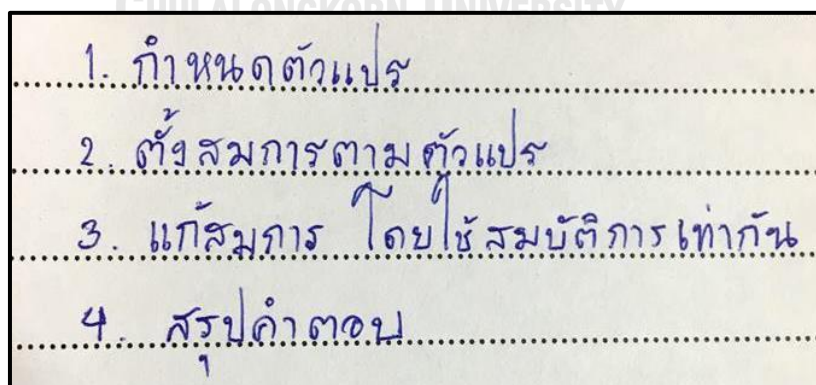 CHULALONGKORN UNIVERSITY
1. กำหนดตัวแปร
2. ตั้งสมการตามตัวแปร
3. แก้สมการ โดยใช้สมบัติการเท่ากัน
4. สรุปคำตอบ